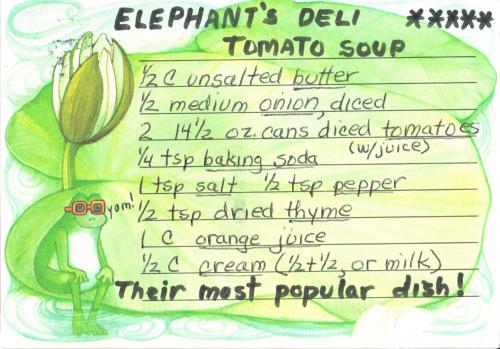 ELEPHANT'S DELI *****
TOMATO SOUP
1/2 C unsalted butter
1/2 medium onion, diced
2 14 1/2 oz. cans diced tomatoes
(w/juice)
1/4 tsp baking soda
1 tsp salt 1/2 tsp pepper
yom!
1/2 tsp dried thyme
1 C orange juice
1/2 C cream (1/2+1/2, or milk)
Their most popular dish!